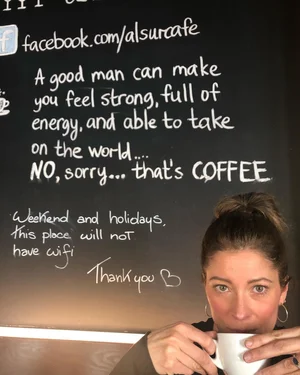 facebook.com/alsurcafe
A good man can make
you feel strong, full of
energy, and able to take
on the world....
NO, sorry... that's COFFEE
Weekend and holidays,
this place will not
have wifi
Thank you